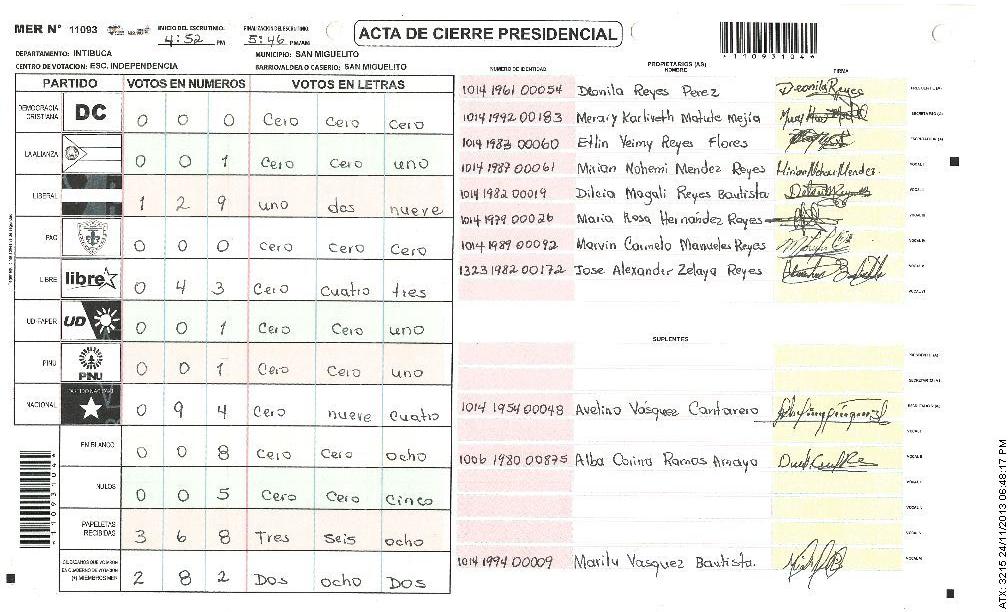 MER N° 11093
INICIO DEL ESCRUTINIO: 4:52 PM
FINALIZACION DEL ESCRUTINIO: 5:46 PM/AM
ACTA DE CIERRE PRESIDENCIAL
*1109310 4*
DEPARTAMENTO: INTIBUCA
MUNICIPIO: SAN MIGUELITO
CENTRO DE VOTACION: ESC. INDEPENDENCIA
BARRIO/ALDEA O CASERIO: SAN MIGUELITO
PARTIDO VOTOS EN NUMEROS VOTOS EN LETRAS
DEMOCRACIA CRISTIANA DC 0 0 0 Cero Cero Cero
LA ALIANZA 0 0 1 Cero Cero uno
LIBERAL 1 2 9 uno dos nueve
PAC 0 0 0 Cero Cero Cero
LIBRE libre 0 4 3 Cero Cuatro tres
UD-FAPER UD 0 0 1 Cero Cero uno
PINU PINU 0 0 1 Cero Cero uno
NACIONAL 0 9 4 Cero nueve Cuatro
EN BLANCO 0 0 8 Cero Cero ocho
NULOS 0 0 5 Cero Cero Cinco
PAPELETAS RECIBIDAS 3 6 8 Tres seis ocho
CIUDADANOS QUE VOTARON EN CUADERNO DE VOTACION (+) MIEMBROS MER 2 8 2 Dos ocho Dos
NUMERO DE IDENTIDAD PROPIETARIOS (AS) NOMBRE FIRMA
1014 1961 00054 Deonila Reyes Perez Deonila Reyes PRESIDENTE (A)
1014 1992 00183 Merary Karliveth Matute Mejía SECRETARIO (A)
1014 1983 00060 Etlin Yeimy Reyes Flores ESCRUTADOR (A)
1014 1987 00061 Mirian Nohemi Mendez Reyes Mirian Nohemi Mendez VOCAL I
1014 1982 00019 Dilcia Magali Reyes Bautista VOCAL II
1014 1979 00026 Maria Rosa Hernández Reyes VOCAL III
1014 1989 00092 Marvin Carmelo Manueles Reyes VOCAL IV
1323 1982 00172 Jose Alexander Zelaya Reyes VOCAL V
VOCAL VI
SUPLENTES
PRESIDENTE (A)
SECRETARIO (A)
1014 1954 00048 Avelino Vásquez Cantarero ESCRUTADOR (A)
VOCAL I
1006 1980 00875 Alba Corina Ramos Amaya VOCAL II
1014 1994 00009 Marilu Vasquez Bautista.
ATX: 3215 24/11/2013 06:48:17 PM